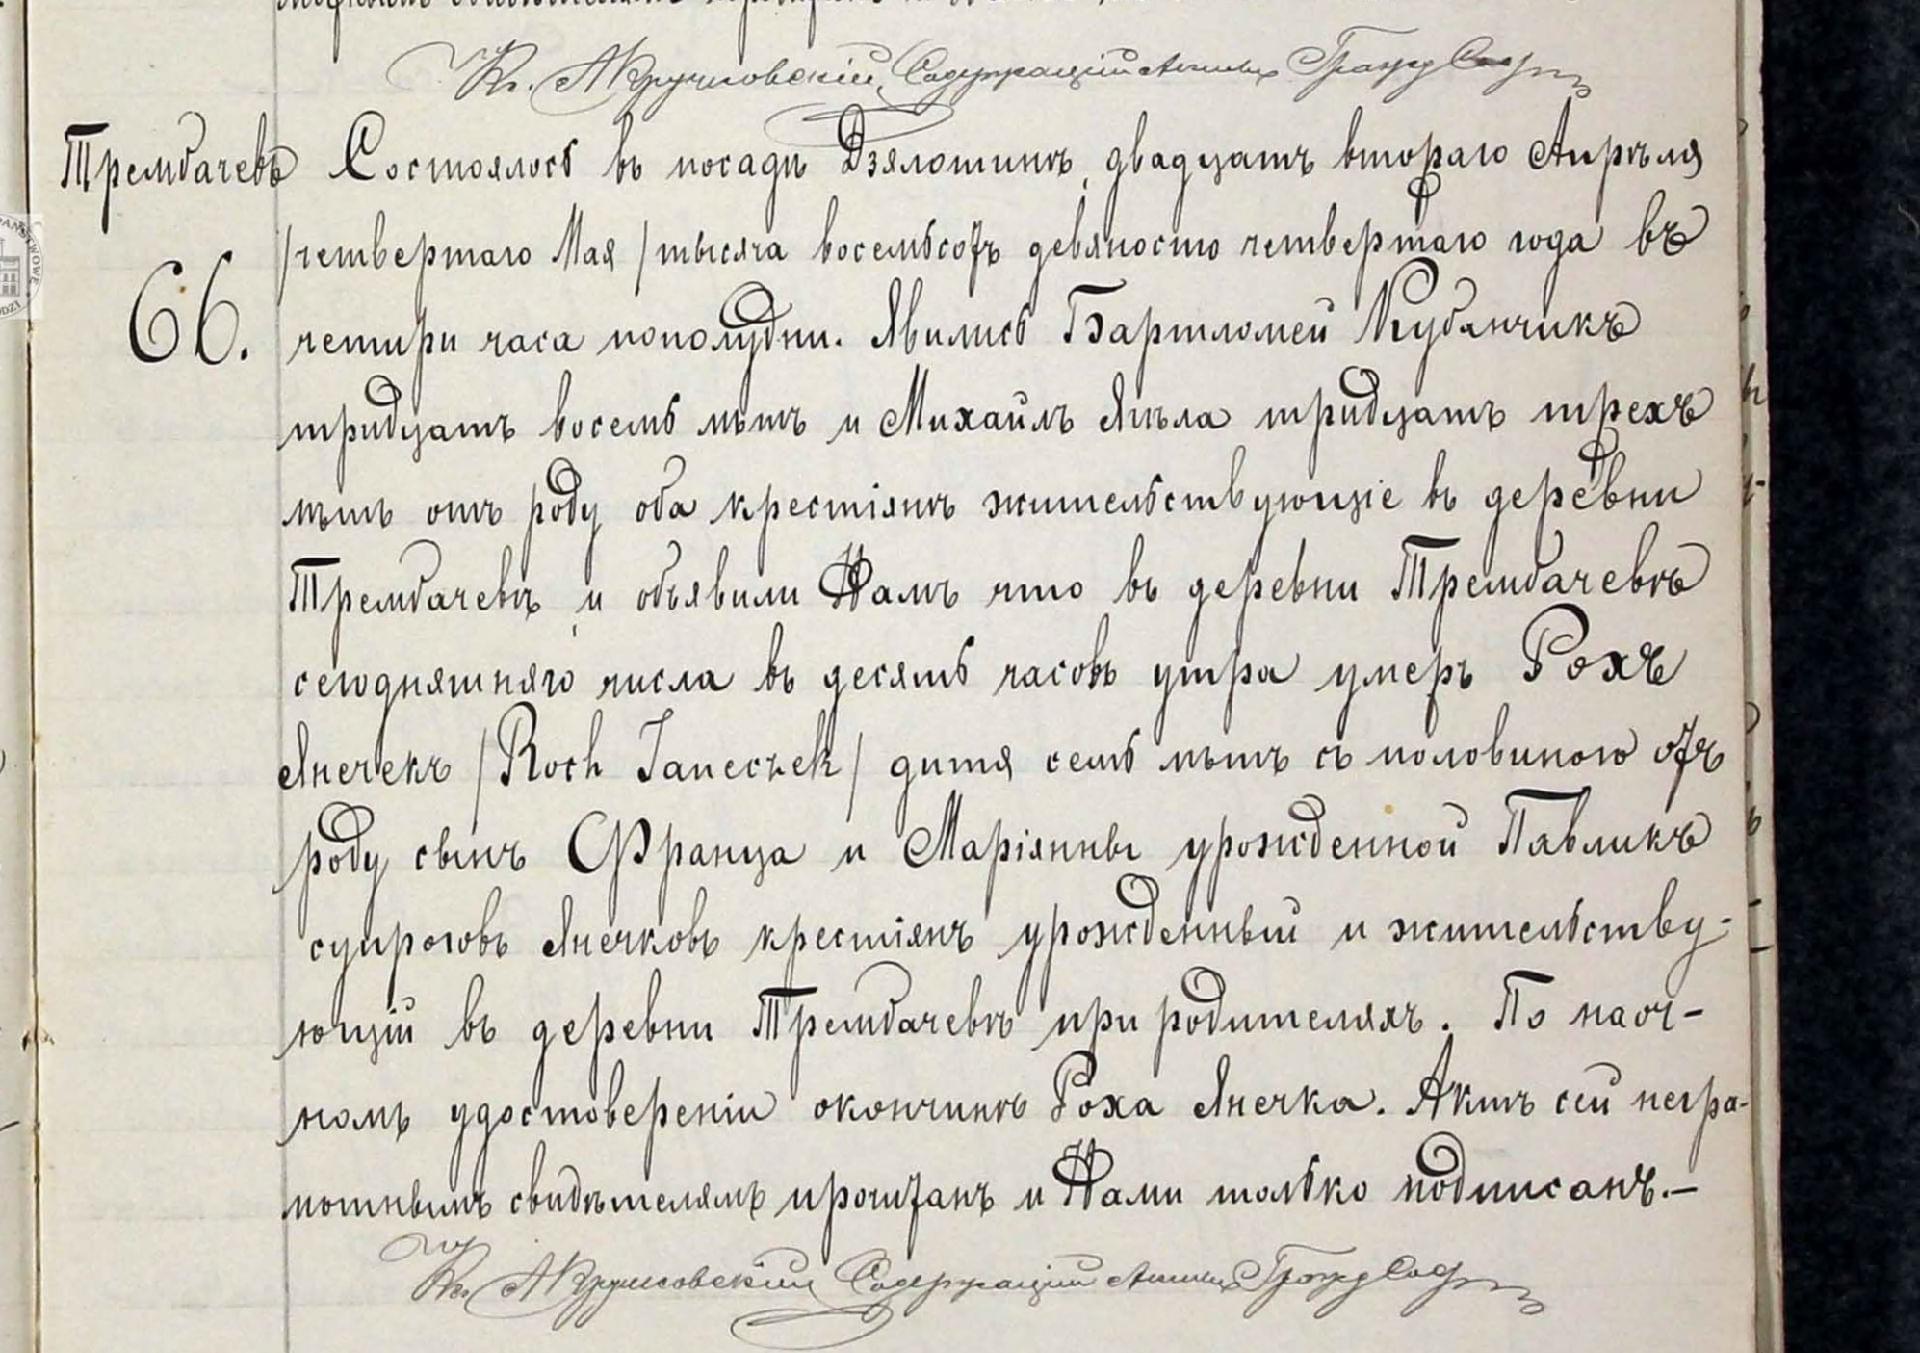 Кс. А Кружловскій, Содержащій Акты Гражд Сост
Трембачевъ Состоялось въ посадѣ Дзялошинѣ, двадцать втораго Апрѣля
/четвертаго Мая/ тысяча восемьсотъ девяносто четвертаго года въ
66. четыри часа пополудни. Явились Бартломей Кубанчикъ
тридцать восемь лѣтъ и Михаилъ Япѣла тридцать трехъ
лѣтъ отъ роду оба крестіянѣ жительствующіе въ деревни
Трембачевѣ и объявили Намъ что въ деревни Трембачевѣ
сегодняшняго числа въ десять часовъ утра умеръ Рохъ
Янечекъ /Roch Janeczek/ дитя семь лѣтъ съ половиною отъ
роду сынъ Франца и Маріянны урожденной Павликъ
супроговъ Янечковъ крестіянъ урожденный и жительству-
ющій въ деревни Трембачевѣ при родителяхъ. По наоч-
номъ удостовереніи окончинѣ Роха Янечка. Актъ сей негра-
мотнымъ свидѣтелямъ прочитанъ и Нами только подписанъ.—
Кс. А Кружловскій Содержащій Акты Гражд Сост